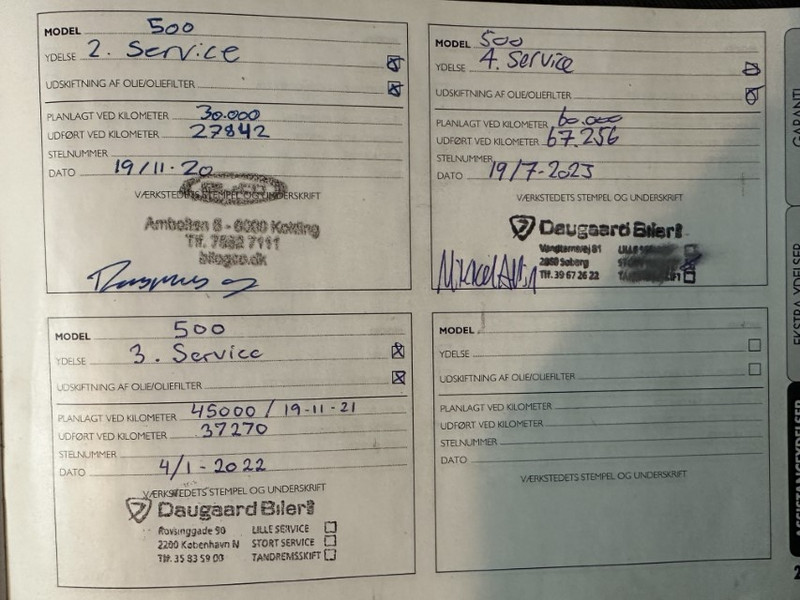 MODEL 500
YDELSE 2. Service
UDSKIFTNING AF OLIE/OLIEFILTER
PLANLAGT VED KILOMETER 30.000
UDFØRT VED KILOMETER 27842
STELNUMMER
DATO 19/11-20
VÆRKSTEDETS STEMPEL OG UNDERSKRIFT
Ambolten 6 - 6000 Kolding
Tlf. 7552 7111
bilogco.dk
MODEL 500
YDELSE 3. Service
UDSKIFTNING AF OLIE/OLIEFILTER
PLANLAGT VED KILOMETER 45000 / 19-11-21
UDFØRT VED KILOMETER 37270
STELNUMMER
DATO 4/1-2022
VÆRKSTEDETS STEMPEL OG UNDERSKRIFT
Daugaard Biler
Rovsinggade 90 LILLE SERVICE
2200 København N STORT SERVICE
Tlf. 35 83 59 00 TANDREMSSKIFT
MODEL 500
YDELSE 4. Service
UDSKIFTNING AF OLIE/OLIEFILTER
PLANLAGT VED KILOMETER 60.000
UDFØRT VED KILOMETER 67.256
STELNUMMER
DATO 19/7-2023
VÆRKSTEDETS STEMPEL OG UNDERSKRIFT
Daugaard Biler
Vandtårnsvej 81 LILLE
2860 Søborg
Tlf. 39 67 26 22
MODEL
YDELSE
UDSKIFTNING AF OLIE/OLIEFILTER
PLANLAGT VED KILOMETER
UDFØRT VED KILOMETER
STELNUMMER
DATO
VÆRKSTEDETS STEMPEL OG UNDERSKRIFT
GARANTI
EKSTRA YDELSER
ASSISTANCEYDELSER